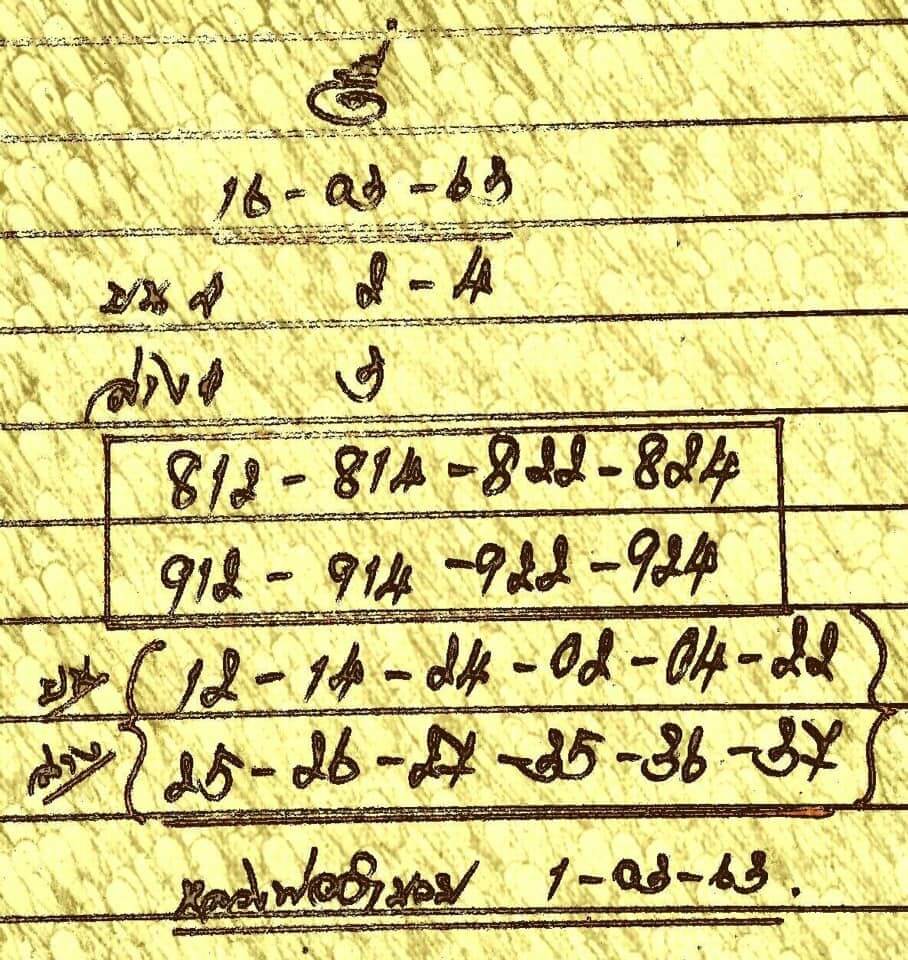 16 - 03 - 63
บน 2 - 4
ล่าง 3
812 - 814 - 822 - 824
912 - 914 - 922 - 924
บน 12 - 14 - 24 - 02 - 04 - 22
ล่าง 25 - 26 - 27 - 35 - 36 - 37
1 - 03 - 63 .